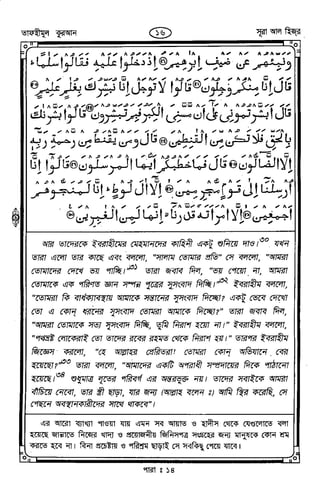 তাফহীমুল কুরআন
১৬
সূরা আল হিজর
وَنَبِّئْهُمْ عَنْ ضَيْفِ إِبْرٰهِيْمَ ۝ إِذْ دَخَلُوْا عَلَيْهِ فَقَالُوْا سَلٰمًا ۭ
قَالَ إِنَّا مِنْكُمْ وَجِلُوْنَ ۝ قَالُوْا لَا تَوْجَلْ إِنَّا نُبَشِّرُكَ بِغُلٰمٍ عَلِيْمٍ ۝
قَالَ أَبَشَّرْتُمُوْنِيْ عَلٰٓى أَنْ مَّسَّنِيَ الْكِبَرُ فَبِمَ تُبَشِّرُوْنَ ۝ قَالُوْا بَشَّرْنٰكَ
بِالْحَقِّ فَلَا تَكُنْ مِّنَ الْقٰنِطِيْنَ ۝ قَالَ وَمَنْ يَّقْنَطُ مِنْ رَّحْمَةِ رَبِّهٖٓ
إِلَّا الضَّآلُّوْنَ ۝ قَالَ فَمَا خَطْبُكُمْ أَيُّهَا الْمُرْسَلُوْنَ ۝ قَالُوْٓا إِنَّآ
أُرْسِلْنَآ إِلٰى قَوْمٍ مُّجْرِمِيْنَ ۝ إِلَّآ اٰلَ لُوْطٍ ۭ إِنَّا لَمُنَجُّوْهُمْ
أَجْمَعِيْنَ ۝ إِلَّا امْرَأَتَهٗ قَدَّرْنَآ ۙ إِنَّهَا لَمِنَ الْغٰبِرِيْنَ ۝
আর তাদেরকে ইবরাহীমের মেহমানদের কাহিনী একটু শুনিয়ে দাও।৩০ যখন
তারা এলো তার কাছে এবং বললো, “সালাম তোমার প্রতি” সে বললো, “আমরা
তোমাদের দেখে ভয় পাচ্ছি।”৩১ তারা জবাব দিল, “ভয় পেয়ো না, আমরা
তোমাকে এক পরিণত জ্ঞান সম্পন্ন পুত্রের সুসংবাদ দিচ্ছি।”৩২ ইবরাহীম বললো,
“তোমরা কি বার্ধক্যাবস্থায় আমাকে সন্তানের সুসংবাদ দিচ্ছো? একটু ভেবে দেখো
তো এ কোন্ ধরনের সুসংবাদ তোমরা আমাকে দিচ্ছো?” তারা জবাব দিল,
“আমরা তোমাকে সত্য সুসংবাদ দিচ্ছি, তুমি নিরাশ হয়ো না।” ইবরাহীম বললো,
“পথভ্রষ্ট লোকেরাই তো তাদের রবের রহমত থেকে নিরাশ হয়।” তারপর ইবরাহীম
জিজ্ঞেস করলো, “হে আল্লাহর প্রেরিতরা! তোমরা কোন্ অভিযানে বের
হয়েছো?”৩৩ তারা বললো, “আমাদের একটি অপরাধী সম্প্রদায়ের দিকে পাঠানো
হয়েছে।৩৪ শুধুমাত্র লূতের পরিবর্গ এর অন্তরভুক্ত নয়। তাদের সবাইকে আমরা
বাঁচিয়ে নেবো, তার স্ত্রী ছাড়া, যার জন্য (আল্লাহ বলেন ঃ) আমি স্থির করেছি, সে
পেছনে অবস্থানকারীদের সাথে থাকবে”।
এর আরো ব্যাখ্যা পাওয়া যায় এমন সব আয়াত ও হাদীস থেকে যেগুলোতে বলা
হয়েছে জান্নাতে নিজের খাদ্য ও প্রয়োজনীয় জিনিসপত্র সংগ্রহের জন্য মানুষকে কোন শ্রম
করতে হবে না। বিনা প্রচেষ্টায় ও পরিশ্রম ছাড়াই সে সবকিছু পেয়ে যাবে।
পারা ঃ ১৪